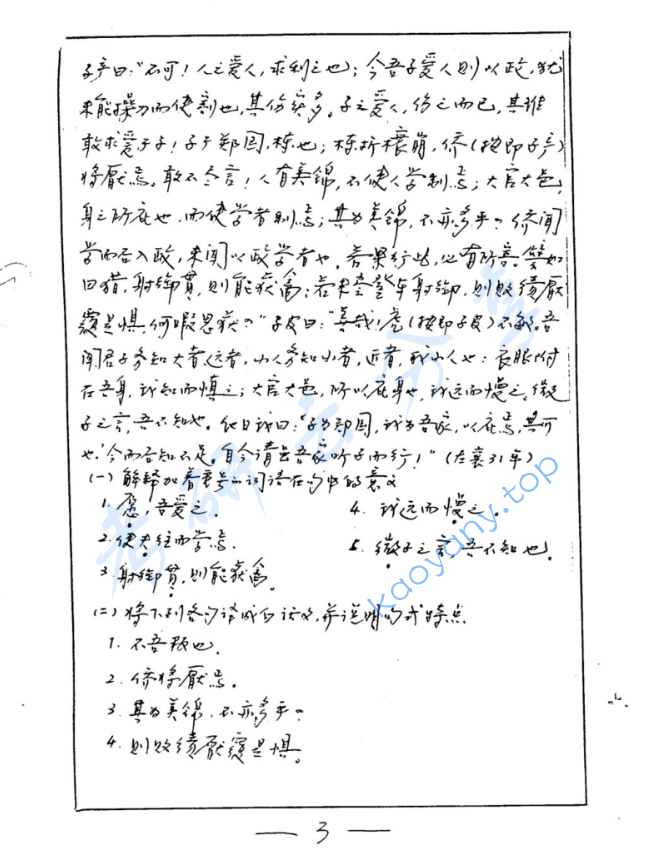 子产曰："不可！人之爱人，求利之也；今吾子爱人则以政，犹
未能操刀而使割也，其伤实多。子之爱人，伤之而已，其谁
敢求爱于子！子于郑国，栋也；栋折榱崩，侨（按即子产）
将厭焉。敢不尽言！人有美锦，不使人学制焉；大官大邑，
身之所庇也，而使学者制焉；其为美锦，不亦多乎？侨闻
学而后入政，未闻以政学者也。若果行此，必有所害。譬如
田猎，射御贯，则能获禽；若未尝登车射御，则败绩厭
覆是惧，何暇思获？"子皮曰："善哉！虎（按即子皮）不敏。吾
闻君子务知大者、远者，小人务知小者，近者，我小人也：衣服附
在吾身，我知而慎之；大官大邑，所以庇身也，我远而慢之。微
子之言，吾不知也。他日我曰：'子为郑国，我为吾家，以庇焉，其可
也。'今而后知不足。自今请虽吾家听子而行！"（左襄31年）
(一) 解释加着重号的词语在句中的意义
1. 愿，吾爱之。
4. 我远而慢之。
2. 使夫往而学焉。
5. 微子之言，吾不知也。
3. 射御贯，则能获禽。
(二) 将下列各句译成白话文，并说明句式特点
1. 不吾叛也。
2. 侨将厭焉。
3. 其为美锦，不亦多乎？
4. 则败绩厭覆是惧。
考研云分享
kaoyany.top
— 3 —